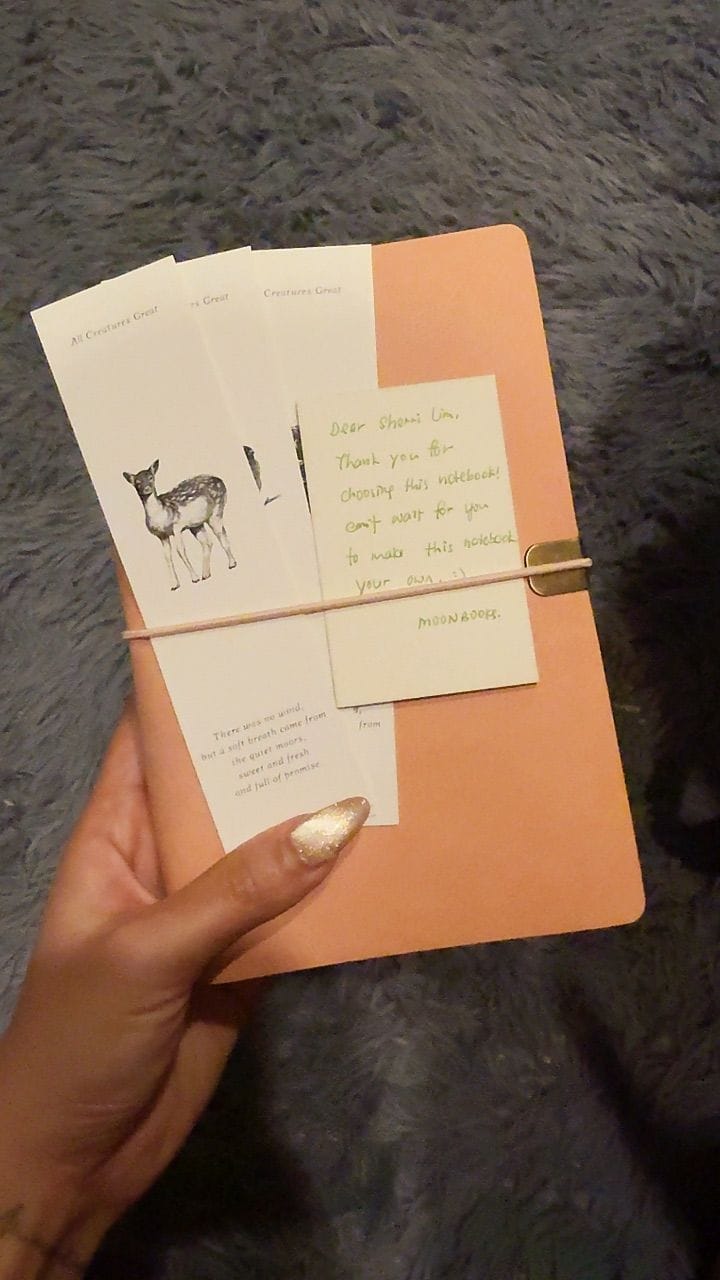 All Creatures Great
es Great
Creatures Great
Dear Sherri Lim,
Thank you for
choosing this notebook!
can't wait for you
to make this notebook
your own. :)
MOONBOOKS.
There was no wind,
but a soft breath came from
the quiet moors,
sweet and fresh
and full of promise
from